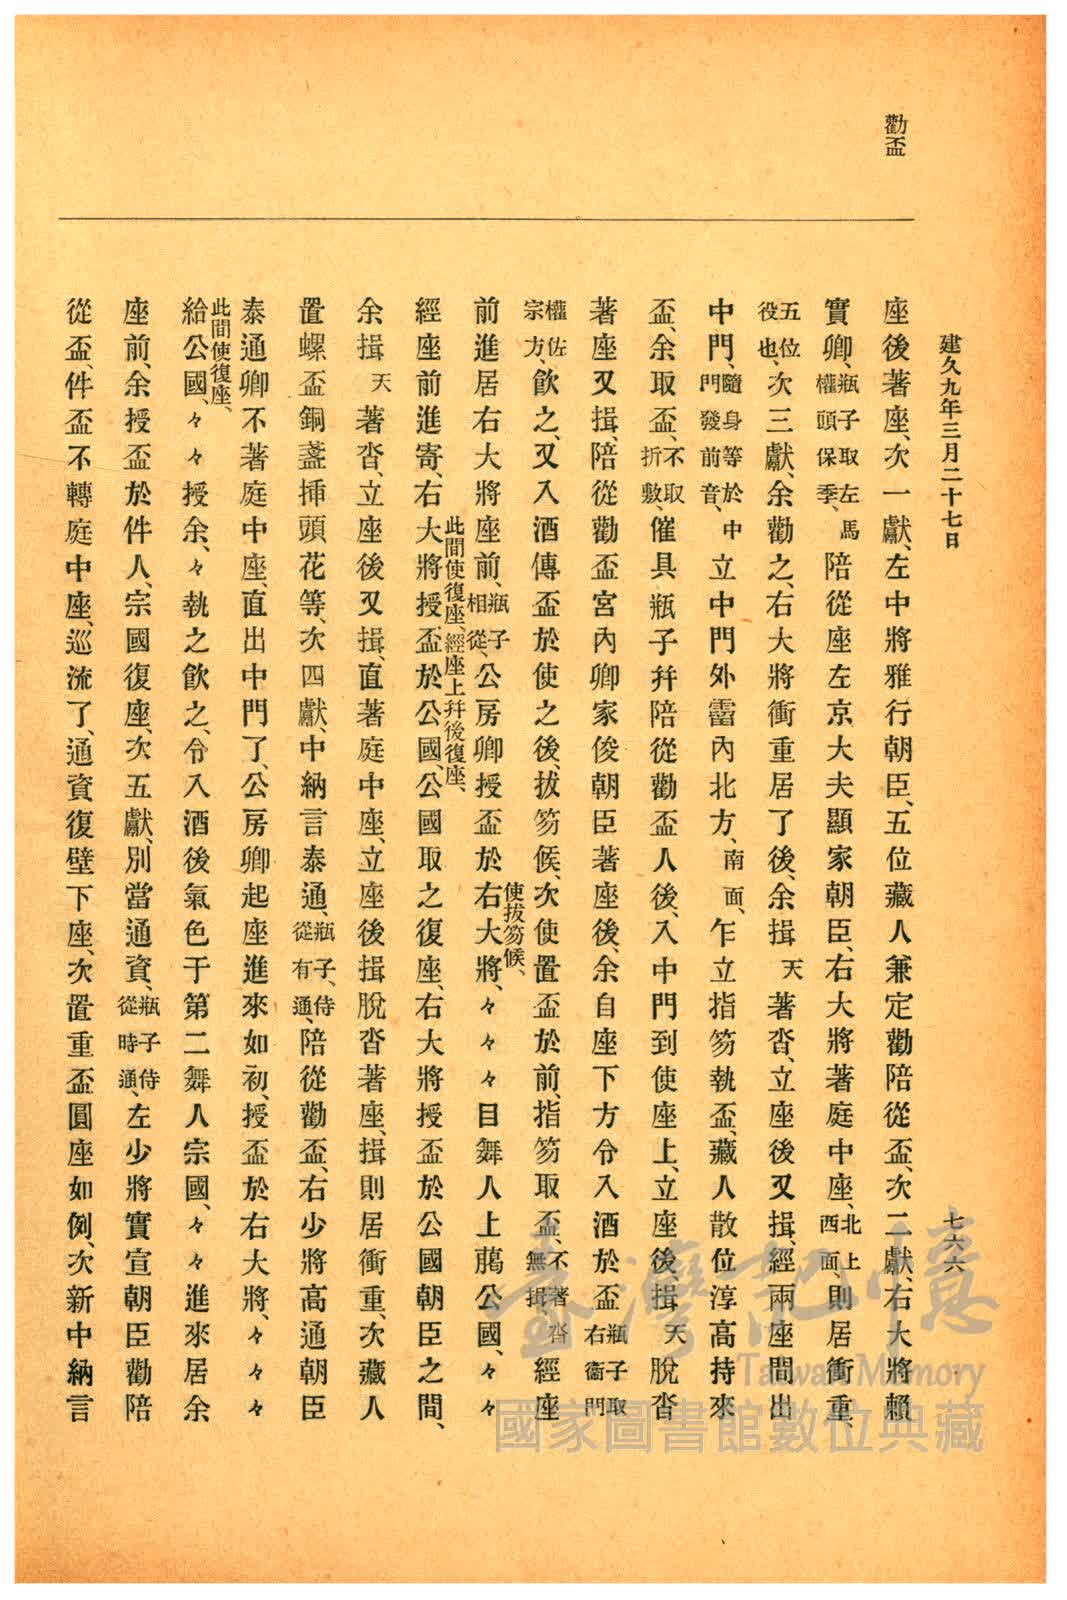 勸盃
建久九年三月二十七日
七六六
座後著座、次一獻、左中將雅行朝臣、五位藏人兼定勸陪從盃、次二獻、右大將賴
實卿、瓶子取左馬權頭保季、陪從座左京大夫顯家朝臣、右大將著庭中座、北上西面、則居衝重、
五位役也、次三獻、余勸之、右大將衝重居了後、余揖天著沓、立座後又揖、經兩座間出
中門、隨身等於中門發前音、立中門外霤內北方、南面、乍立指笏執盃、藏人散位淳高持來
盃、余取盃、不取折敷、催具瓶子幷陪從勸盃人後、入中門到使座上、立座後、揖天脫沓
著座又揖、陪從勸盃宮內卿家俊朝臣著座後、余自座下方令入酒於盃瓶子取右衞門
權佐宗方、飮之、又入酒傳盃於使之後、拔笏候、次使置盃於前、指笏取盃、不著沓無揖、經座
使拔笏候、
前進居右大將座前、瓶子相從、公房卿授盃於右大將、々々々目舞人上﨟公國、々々
此間使復座、經座上幷後復座、
經座前進寄、右大將授盃於公國、公國取之復座、右大將授盃於公國朝臣之間、
余揖天著沓、立座後又揖、直著庭中座、立座後揖脫沓著座、揖則居衝重、次藏人
置螺盃銅盞揷頭花等、次四獻、中納言泰通、瓶子、侍從有通、陪從勸盃、右少將高通朝臣
泰通卿不著庭中座、直出中門了、公房卿起座進來如初、授盃於右大將、々々々
此間使復座、
給公國、々々授余、々執之飮之、令入酒後氣色于第二舞人宗國、々々進來居余
座前、余授盃於件人、宗國復座、次五獻、別當通資、瓶子侍從時通、左少將實宣朝臣勸陪
從盃、件盃不轉庭中座、巡流了、通資復壁下座、次置重盃圓座如例、次新中納言
臺灣記憶
Taiwan Memory
國家圖書館數位典藏